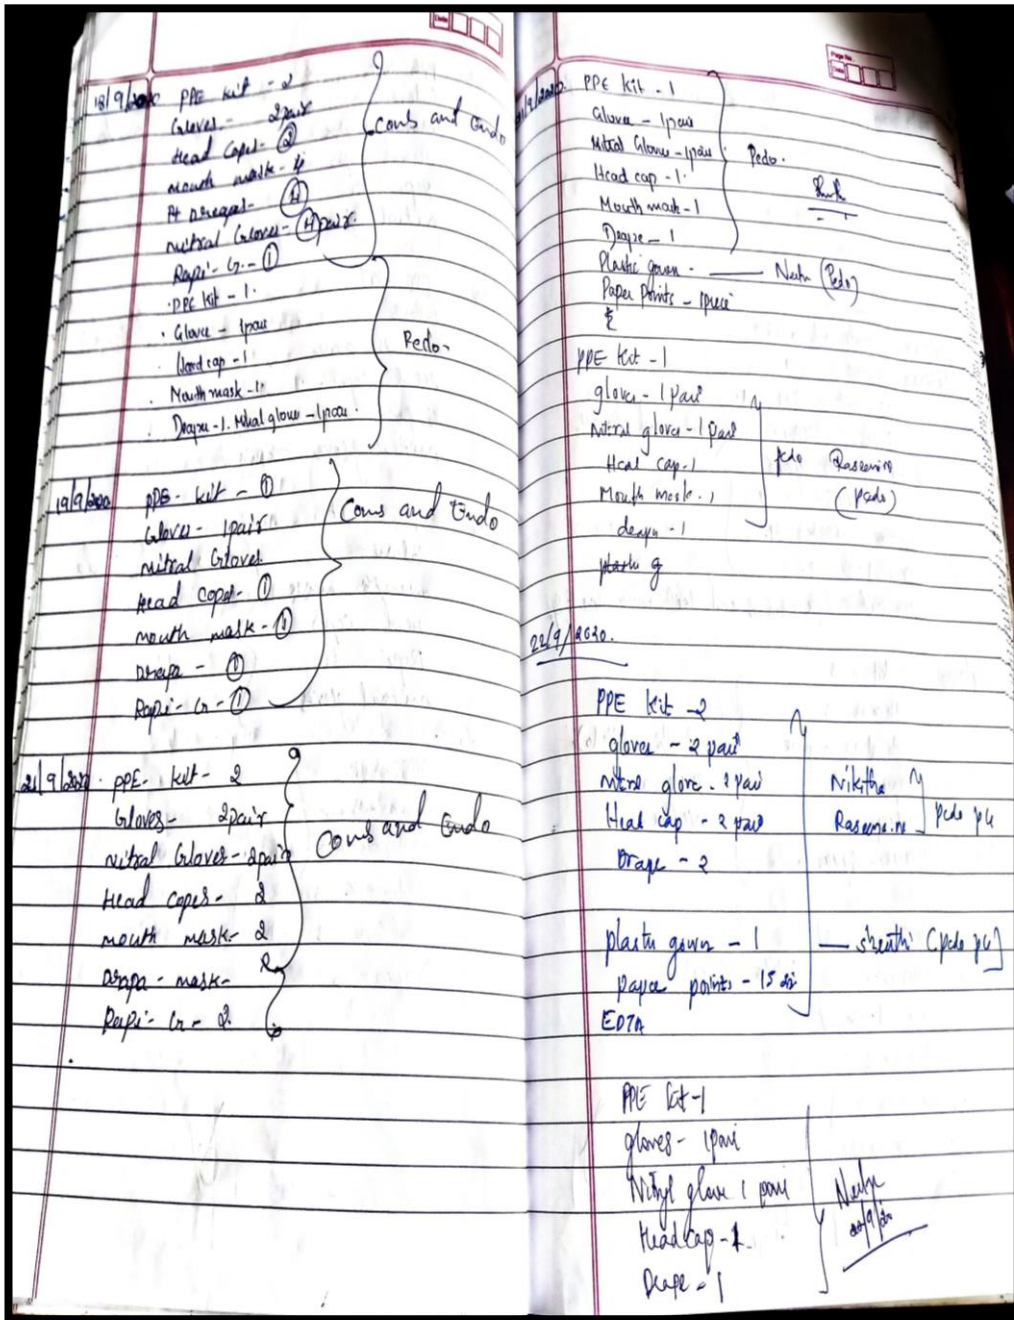 18/9/2020 PPE kit - 2
Gloves - 2pair
Head Capes - 2
mouth mask - 4
Pt Drapes - 4
nitral Gloves - 4 pair.
Rapi - G. - 1
Cons and Endo
PPE kit - 1.
Glove - 1pair
Head cap - 1
Mouth mask - 1.
Drape - 1. Nitral glove - 1pair.
Pedo -
19/9/2020 PPE - kit - 1
Gloves - 1pair
nitral Gloves
Head copes - 1
mouth mask - 1
Drapa - 1
Rapi - Gr - 1
Cons and Endo
21/9/2020. PPE - kit - 2
Gloves - 2pair
nitral Gloves - 2pair
Head copes - 2
mouth mask - 2
Drapa - mask -
Rapi - Gr - 2.
Cons and Endo
Page No.
Date
21/9/2020. PPE kit - 1
Glove - 1pair
Nitral Glove - 1pair
Head cap - 1.
Mouth mask - 1
Drape - 1
Pedo.
Plastic gown. - Neha (Pedo)
Paper Points - 1piece
PPE kit - 1
gloves - 1 pair
Nitral glove - 1 pair
Head cap - 1
Mouth mask - 1
drape - 1
pedo
(pedo)
plastic g
22/9/2020.
PPE kit - 2
gloves - 2 pair
nitral glove - 2 pair
Head cap - 2 pair
Drape - 2
Nikitha
pedo pg
plastic gown - 1 (pedo pg)
paper points - 15
EDTA
PPE kit - 1
gloves - 1pair
Nitryl glove 1 pair
Head cap - 1.
Drape - 1
Neha